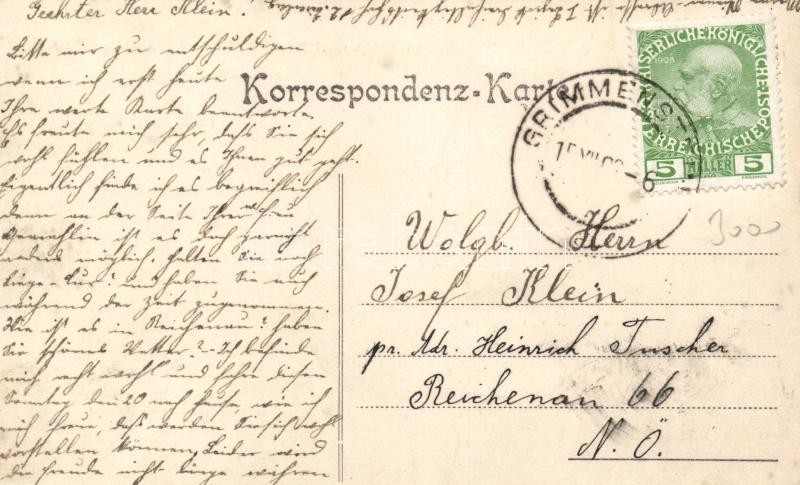 Geehrter Herr Klein!
Bitte mir zu entschuldigen
wenn ich erst heute
Ihre werte Karte beantworte.
Es freute mich sehr, dass Sie sich
wohl fühlen und es Ihnen gut geht.
Eigentlich finde ich es begreiflich
denn an der Seite Ihrer Frau
Gemahlin ist es doch garnicht
anders möglich, halten Sie noch
Liege-Kur? und haben Sie auch
während der Zeit zugenommen.
Wie ist es in Reichenau? haben
Sie schönes Wetter? - Ich befinde
mich recht wohl und fahre diesen
Sonntag den 20 nach Hause, wie ich
mich freue, dass werden Sie sich wohl
vorstellen können, Leider wird
die Freude nicht lange währen
Korrespondenz-Karte
KAISERLICHE KÖNIGLICHE ÖSTERREICHISCHE POST
1908
5 HELLER 5
GRIMMENST
VII 09-6
3000
Wolgb. Herrn
Josef Klein
pr. Adr. Heinrich Tuscher
Reichenau 66
N.Ö.